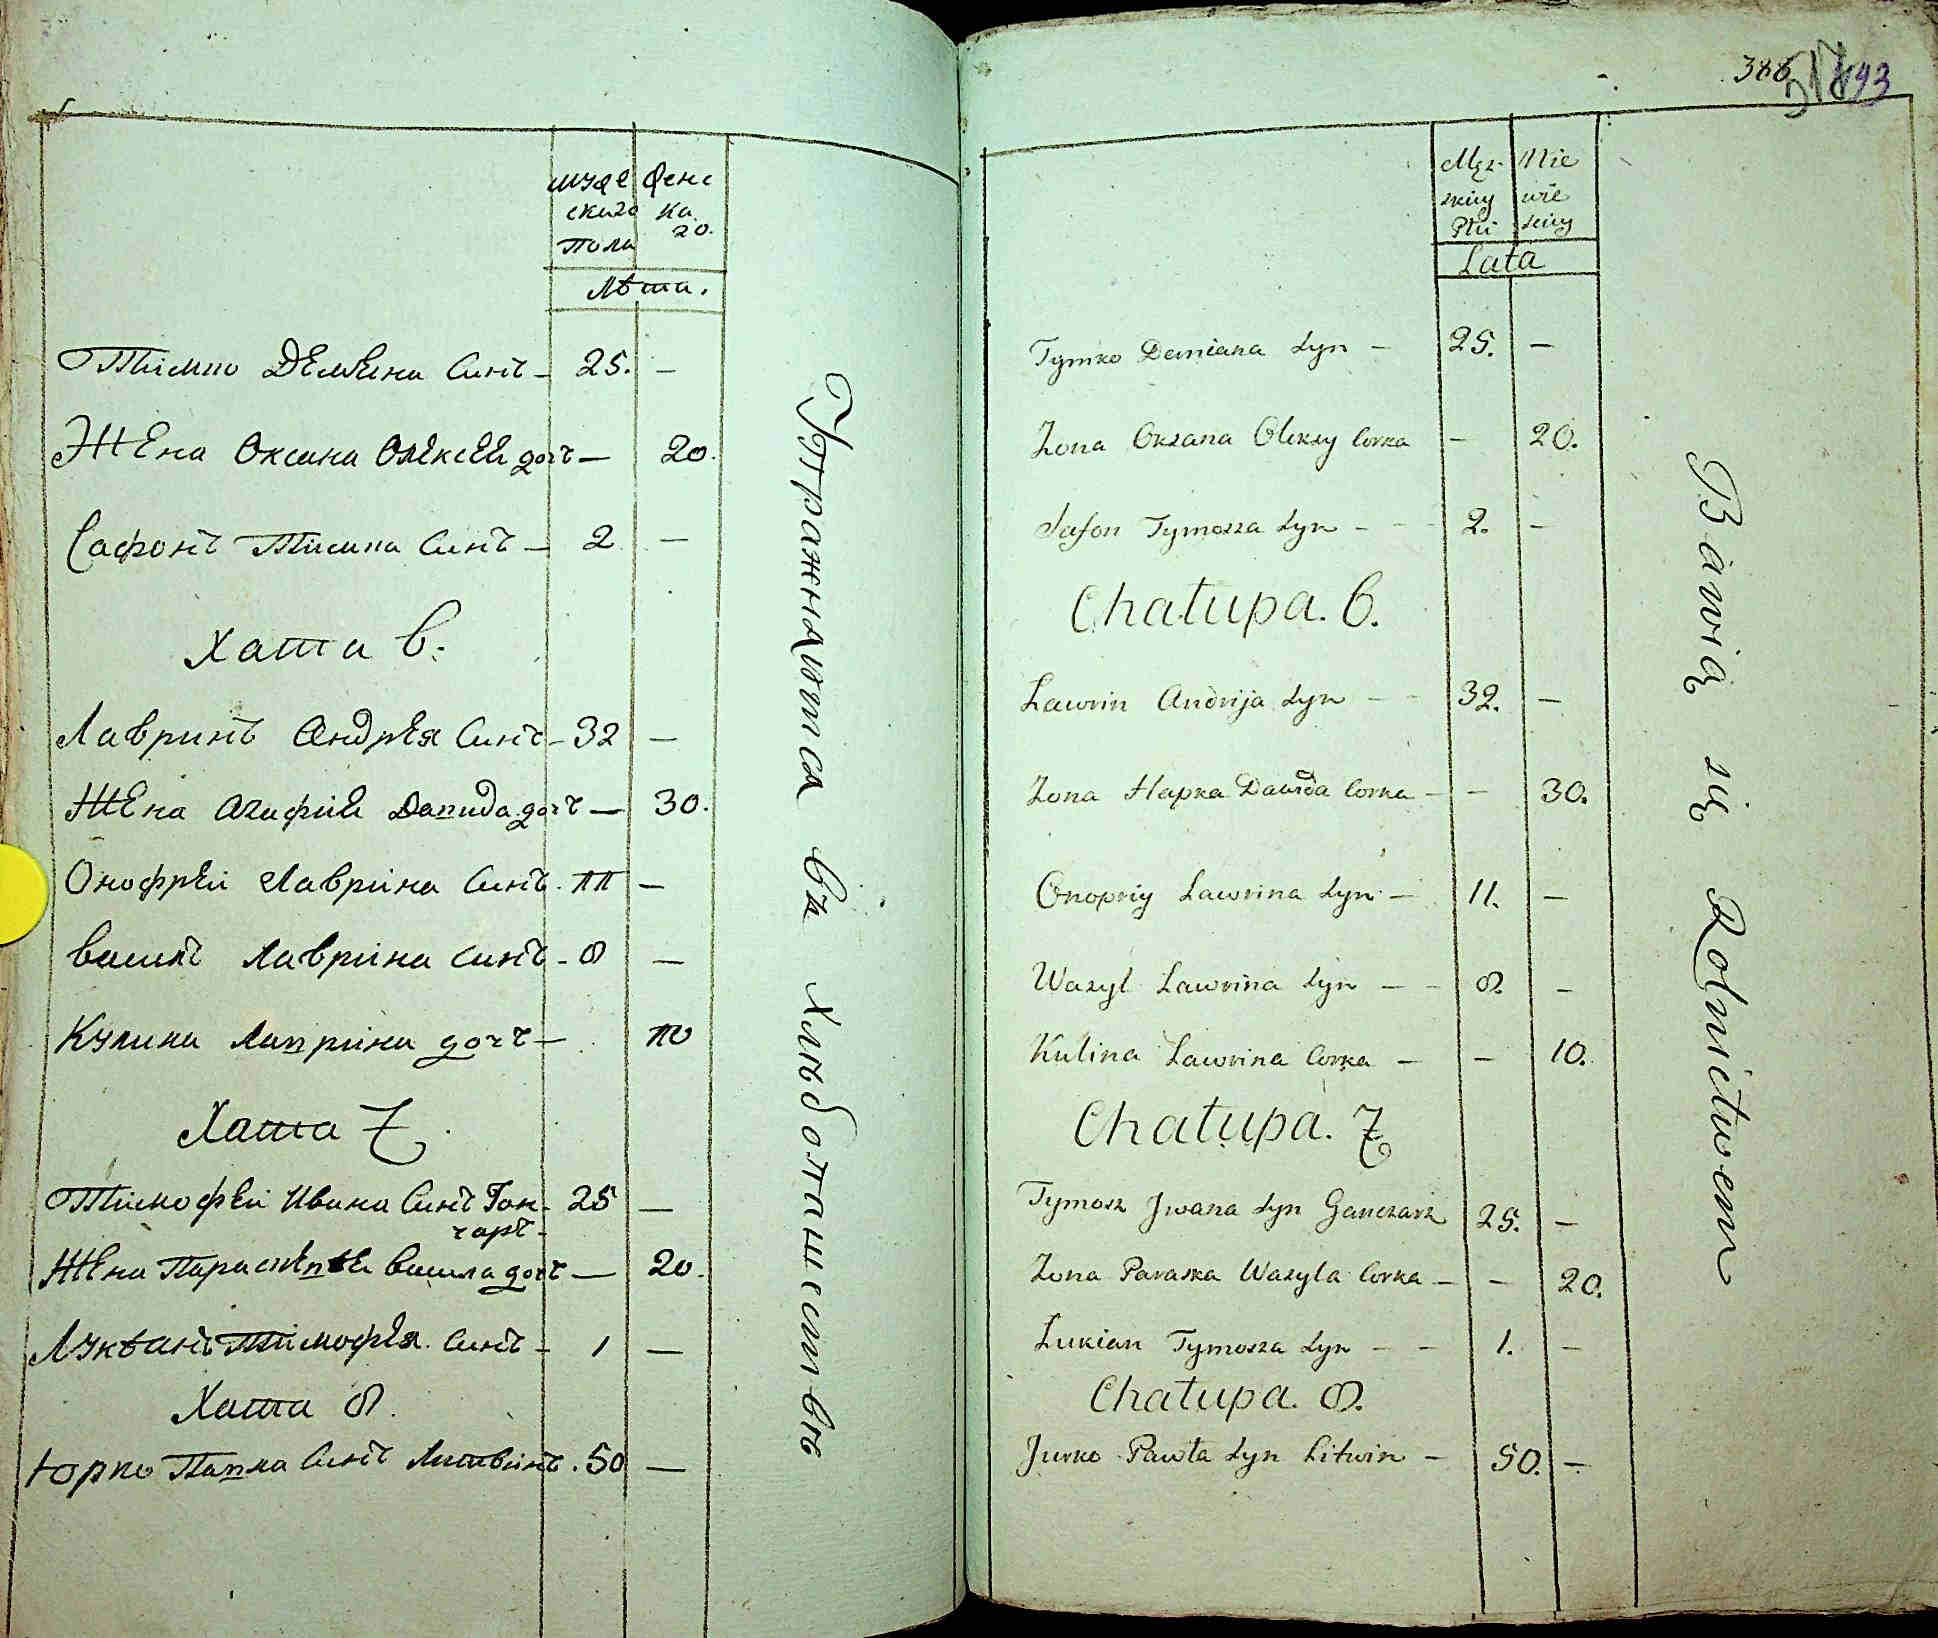 мужескаго пола
женскаго
Лѣта.
Тимко Демяна Синъ — 25. —
Жена Оксана Олексея дочъ — 20.
Сафонъ Тимка Синъ — 2 —
Хата 6.
Лавринъ Андрея Синъ — 32 —
Жена Агафия Давида дочъ — 30.
Онофрей Лаврина Синъ. 11 —
Василъ Лаврина Синъ — 8 —
Кулина Лаврина дочъ — 10
Хата 7.
Тимофей Ивана Синъ Гон- 25 —
чаръ —
Жена Параскевея Васила дочъ — 20.
Лукъянъ Тимофея Синъ — 1 —
Хата 8.
Юрко Павла Синъ Литвинъ. 50 —
Упражняютса въ хлѣбопашествѣ
386 493
Męz-
skiey
Płci
Nie
wie
skiey
Lata
Tymko Demiana Syn — 25. —
Zona Oksana Oleksy Corka — 20.
Safon Tymosza Syn — — 2. —
Chałupa. 6.
Lawrin Andrija Syn — — 32. —
Zona Hapka Dawida Corka — — 30.
Onopriy Lawrina Syn — 11. —
Wasyl Lawrina Syn — — 8. —
Kulina Lawrina Corka — — 10.
Chałupa. 7
Tymosz Jwana Syn Ganczarz 25. —
Zona Paraska Wasyla Corka — — 20.
Lukian Tymosza Syn — — 1. —
Chałupa. 8.
Jurko Pawła Syn Litwin — 50. —
Bawią się Rolnictwem